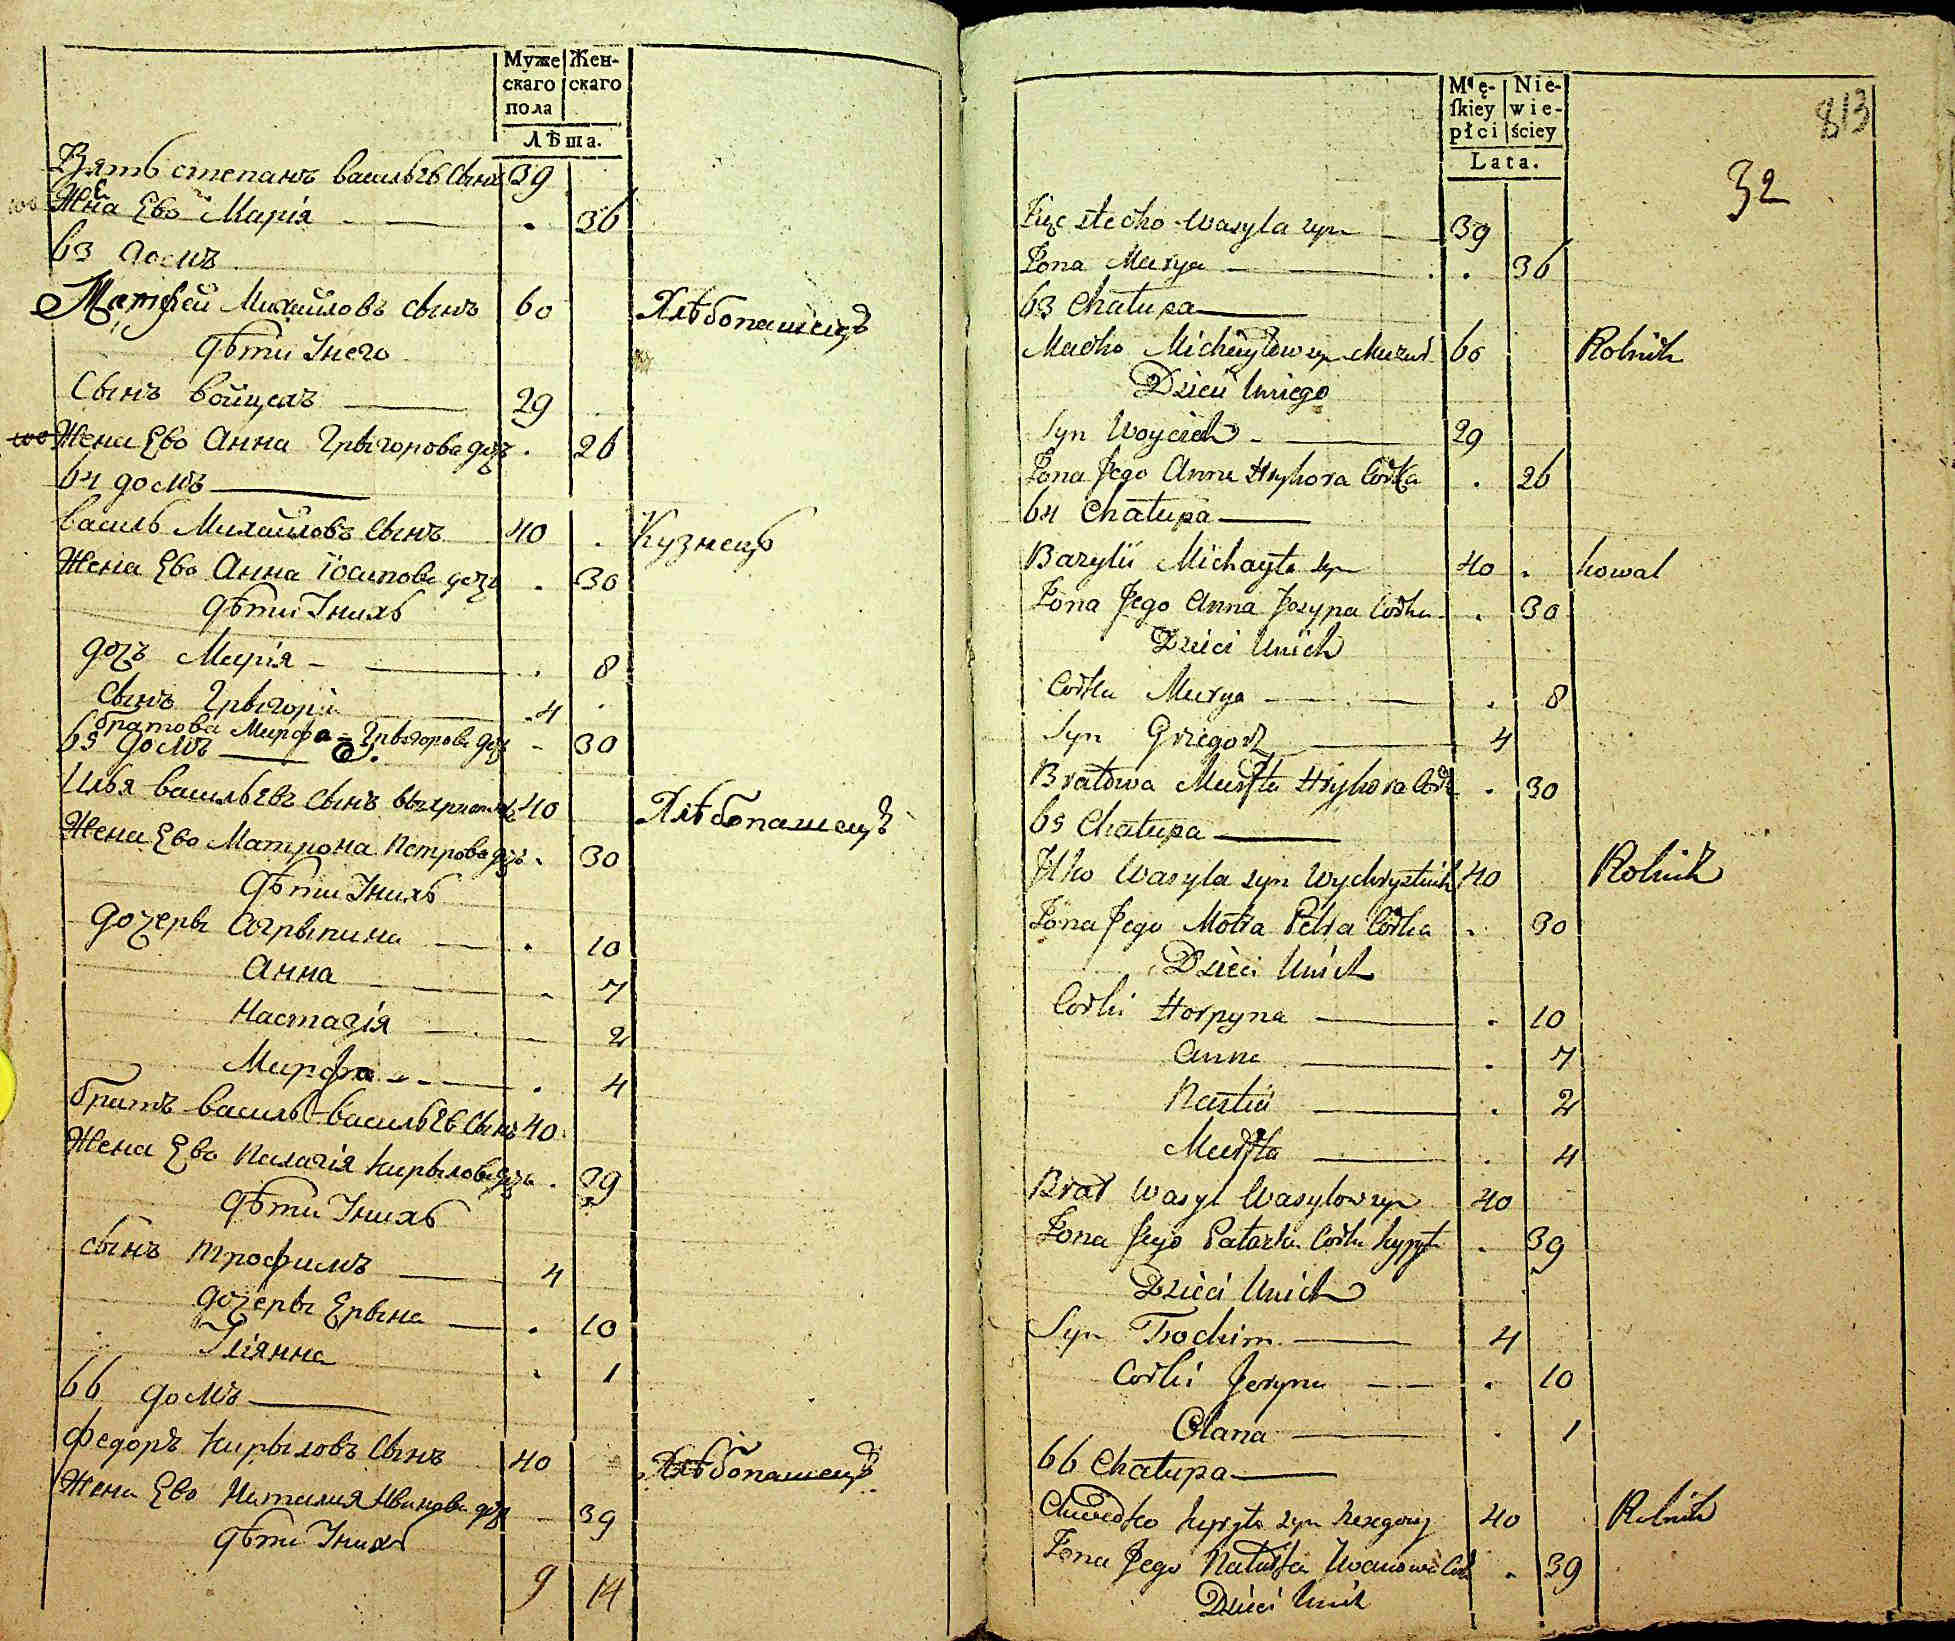 Муже Жен-
скаго скаго
пола
Лѣта.
Зять степанъ васильевъ сынъ 39
Жена Ево Марія 36
63 домъ
Матфей Михайловъ сынъ 60 Хлѣбопашецъ
дѣти Унего
Сынъ войцехъ 29
Жена Ево Анна Грыгорова доч 26
64 домъ
василь Михайловъ сынъ 40 Кузнецъ
Жена Ево Анна Іосипова доч 30
дѣти Унихъ
дочъ Марія 8
сынъ Грыгорій 4
братова Марфа Грыгорова доч 30
65 домъ
Илья васильевъ сынъ 40 Хлѣбопашецъ
Жена Ево Матрона Петрова доч 30
дѣти Унихъ
дочеры Агрыпина 10
Анна 7
Настазія 2
Марфа 4
братъ василь васильевъ сынъ 40
Жена Ево Палагія Кирылова доч 39
дѣти Унихъ
сынъ трофимъ 4
дочеры Ерына 10
Уліянна 1
66 домъ
Федоръ Кирыловъ сынъ 40 Хлѣбопашецъ
Жена Ево Наталия Иванова доч 39
дѣти Унихъ
9 14
Mę- Nie-
skiey wie-
płci ściey
Lata.
813
32
Zięc stecko Wasyla syn 39
Żona Marya 36
63 Chałupa
Macko Michayłow syn Mazur 60 Rolnik
Dzieci Uniego
Syn Woyciech 29
Żona Jego Anna Hryhora Córka 26
64 Chałupa
Bazylii Michayła syn 40 kowal
Żona Jego Anna Josypa Córka 30
Dzieci Unich
Córka Marya 8
Syn Grzegorz 4
Bratowa Marfta Hryhora Cór 30
65 Chałupa
Ilko Wasyla syn Wychrystiuk 40 Rolnik
Żona Jego Motra Petra Córka 30
Dzieci Unich
Córki Horpyna 10
Anna 7
Nastia 2
Marfta 4
Brat Wasyl Wasylow syn 40
Żona Jego Palazka Córka Kyryła 39
Dzieci Unich
Syn Trochim 4
Córki Jeryna 10
Olana 1
66 Chałupa
Chwedko Kyryła syn 40 Rolnik
Żona Jego Natalka Iwanowa Cór 39
Dzieci Unich